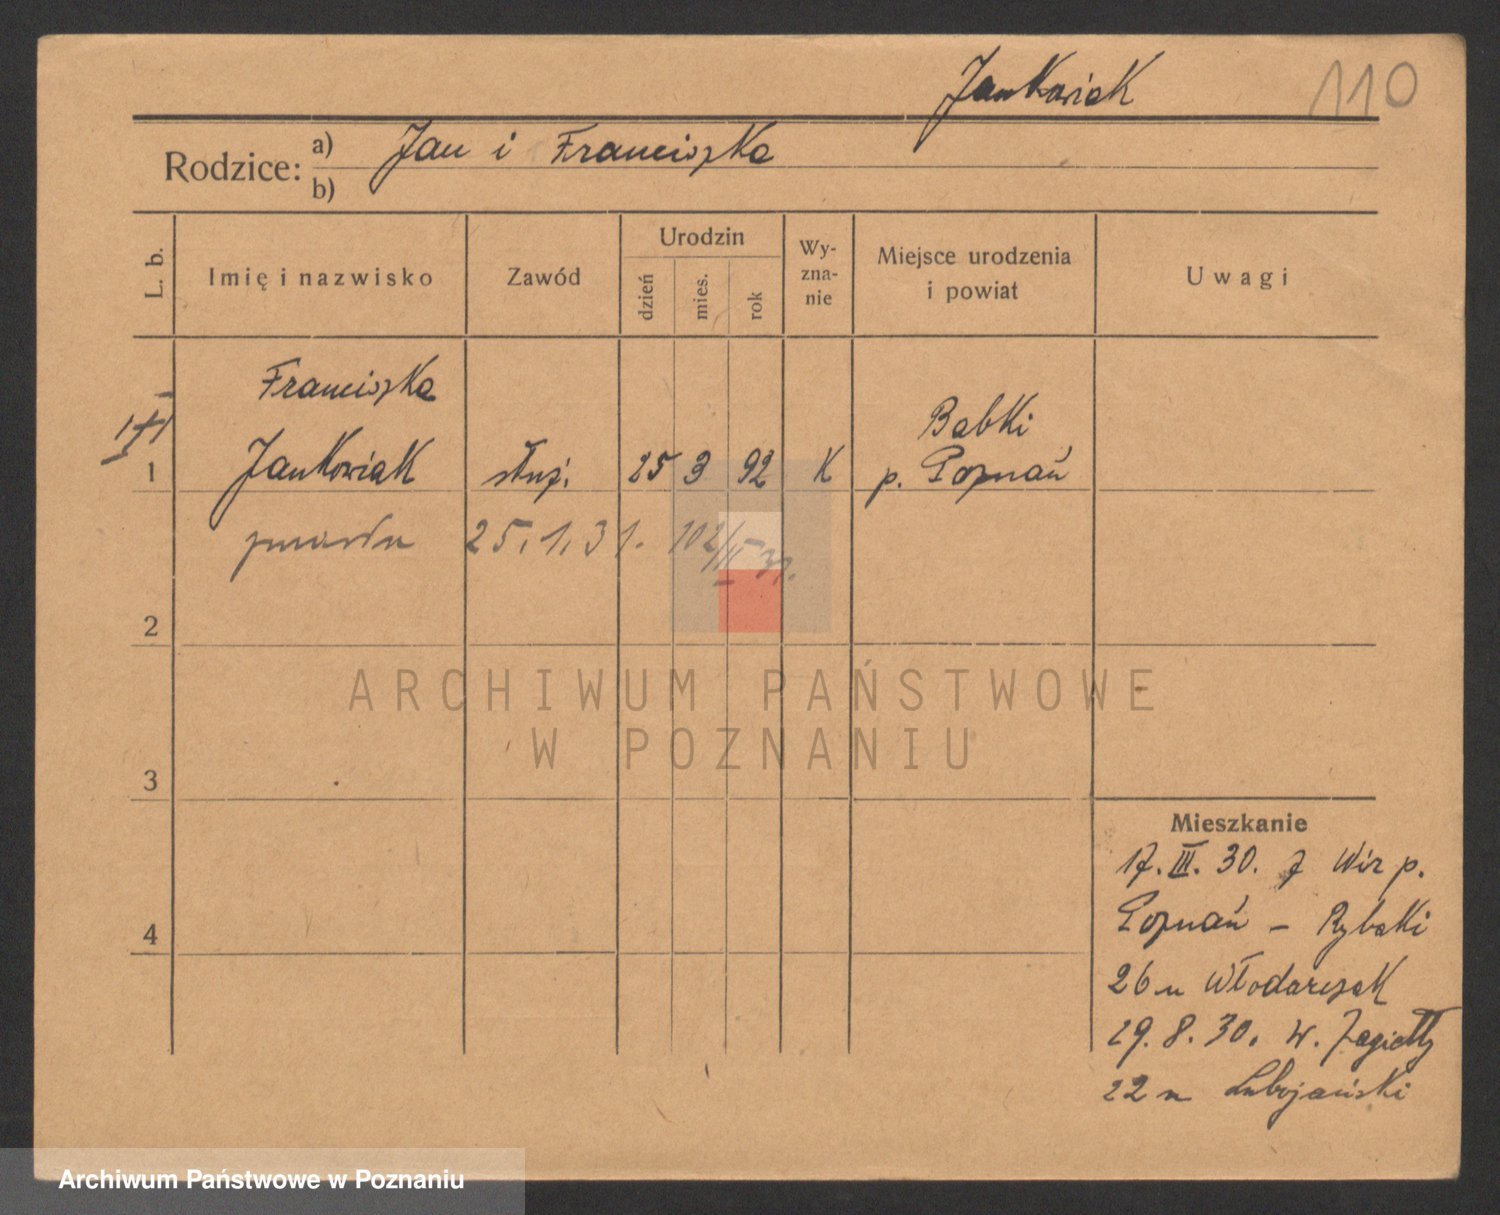 Jankowiak 110
Rodzice: a) Jan i Franciszka
b)
L. b. Imię i nazwisko Zawód Urodzin dzień mies. rok Wy-zna-nie Miejsce urodzenia i powiat Uwagi
Franciszka
Babki
1 Jankowiak służ. 25 3 92 K p. Poznań
zmarła 25.1.31. 102/II 31.
2
ARCHIWUM PAŃSTWOWE
W POZNANIU
3
Mieszkanie
17.III.30. z Wir p.
4 Poznań – Rybaki
26 u Włodarczak
29.8.30. W. Jagiełły
22 u Lubojański
Archiwum Państwowe w Poznaniu